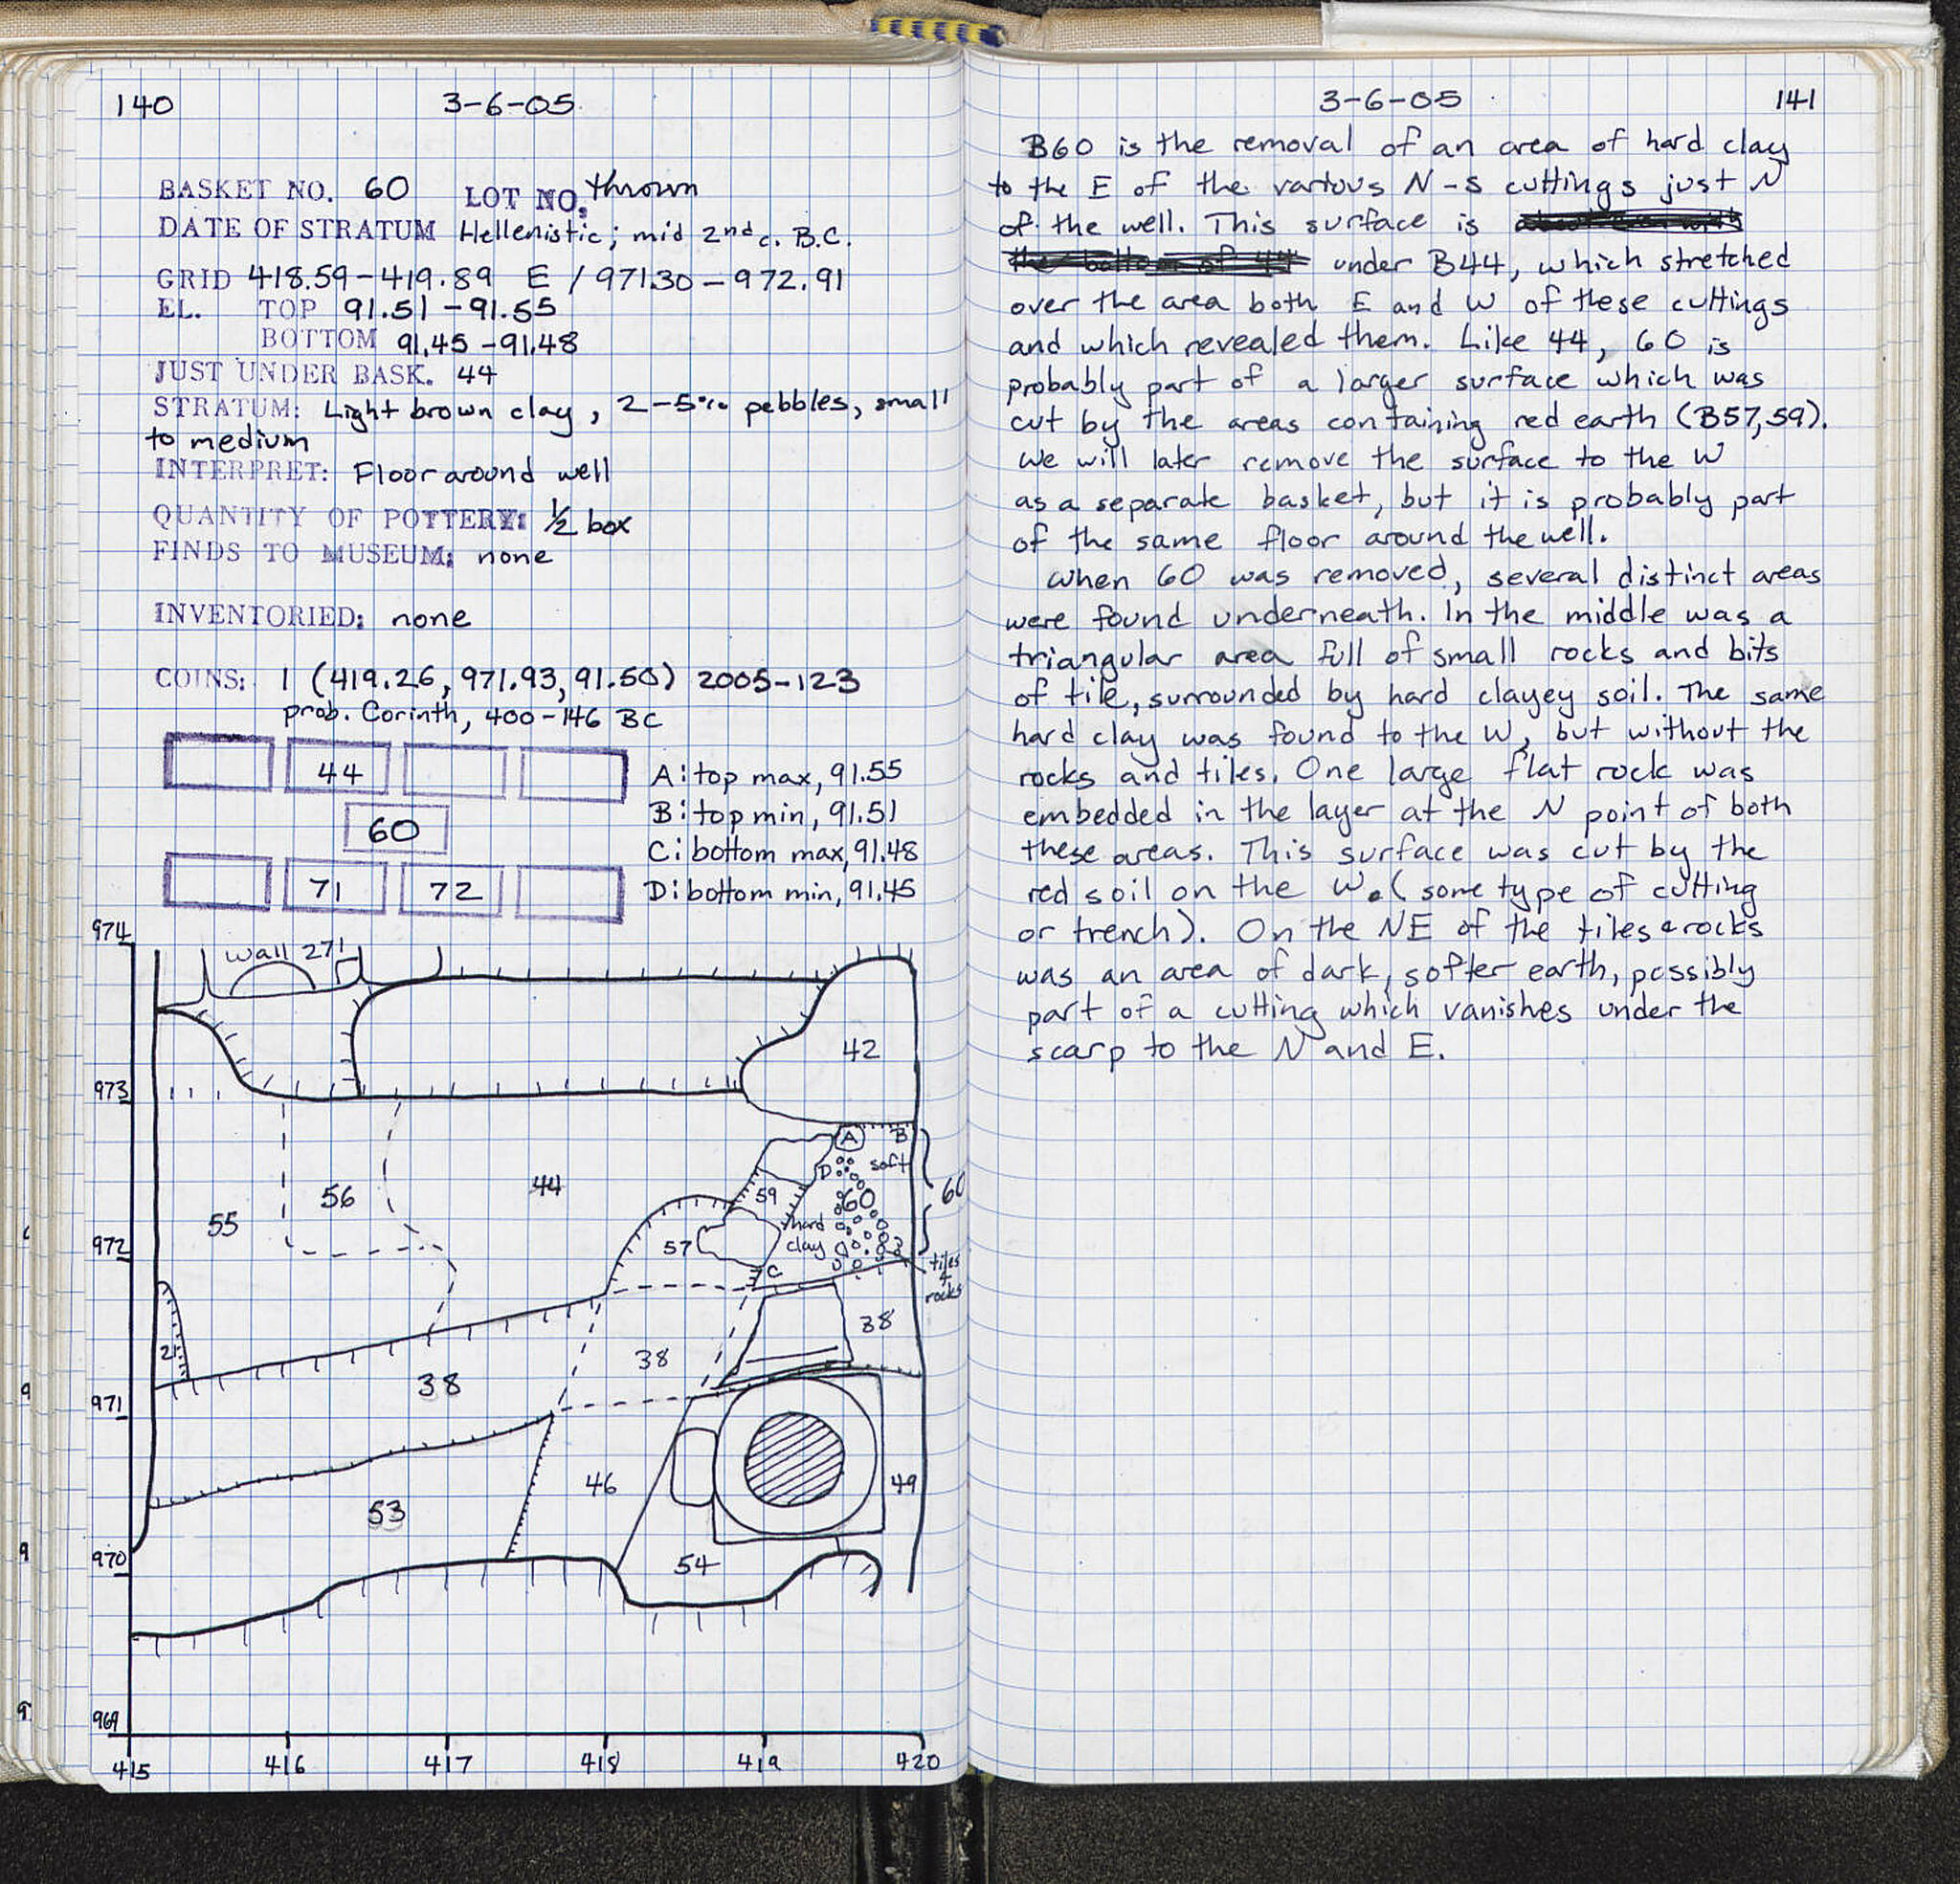 140
3-6-05
BASKET NO. 60 LOT NO. thrown
DATE OF STRATUM Hellenistic; mid 2nd c. B.C.
GRID 418.59-419.89 E / 971.30-972.91
EL. TOP 91.51-91.55
BOTTOM 91.45-91.48
JUST UNDER BASK. 44
STRATUM: Light brown clay, 2-5% pebbles, small
to medium
INTERPRET: Floor around well
QUANTITY OF POTTERY: ½ box
FINDS TO MUSEUM: none
INVENTORIED: none
COINS: 1 (419.26, 971.93, 91.50) 2005-123
prob. Corinth, 400-146 BC
44
60
71 72
A: top max, 91.55
B: top min, 91.51
C: bottom max, 91.48
D: bottom min, 91.45
974
wall 27
42
973
A B
D soft
59 60 60
44
56
55
hard
clay
57
972
C
tiles
+
rocks
38
38
38
971
46
49
53
54
970
969
415 416 417 418 419 420
3-6-05
141
B60 is the removal of an area of hard clay
to the E of the various N-S cuttings just N
of the well. This surface is
under B44, which stretched
over the area both E and W of these cuttings
and which revealed them. Like 44, 60 is
probably part of a larger surface which was
cut by the areas containing red earth (B57,59).
We will later remove the surface to the W
as a separate basket, but it is probably part
of the same floor around the well.
When 60 was removed, several distinct areas
were found underneath. In the middle was a
triangular area full of small rocks and bits
of tile, surrounded by hard clayey soil. The same
hard clay was found to the W, but without the
rocks and tiles. One large flat rock was
embedded in the layer at the N point of both
these areas. This surface was cut by the
red soil on the W. (some type of cutting
or trench). On the NE of the tiles & rocks
was an area of dark, softer earth, possibly
part of a cutting which vanishes under the
scarp to the N and E.